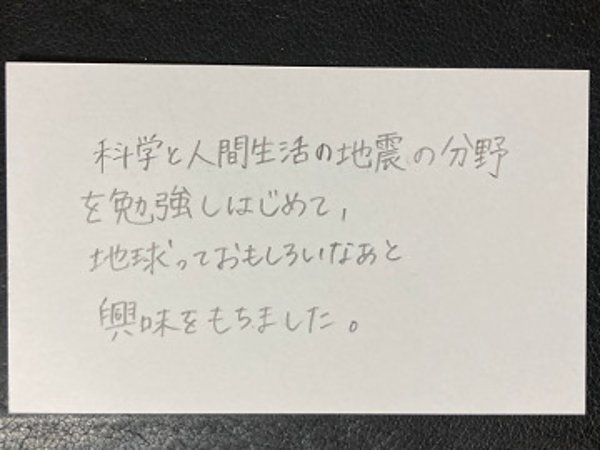 科学と人間生活の地震の分野
を勉強しはじめて,
地球っておもしろいなあと
興味をもちました。